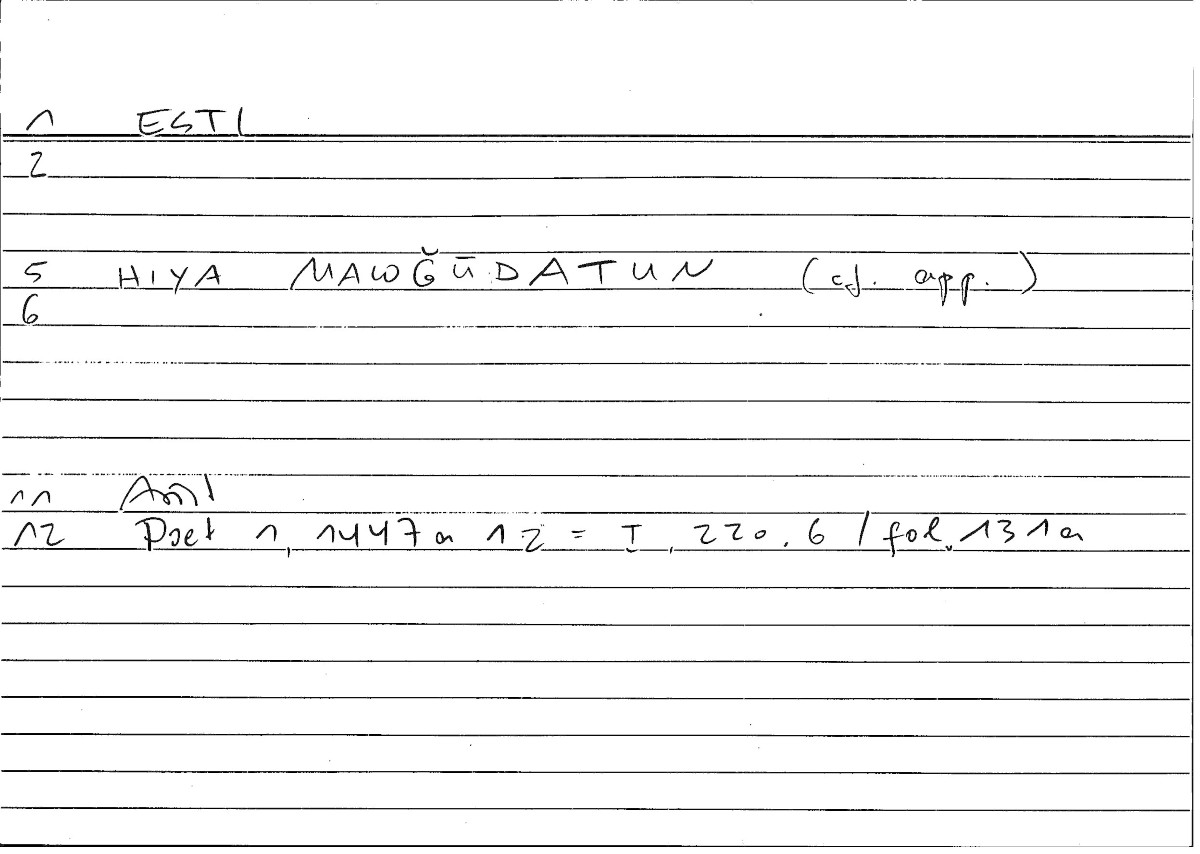 1 ESTI
2
5 HIYA MAWĞŪDATUN (cf. app.)
6
11 Arist
12 Poet 1, 1447a 12 = I, 220.6 / fol. 131a